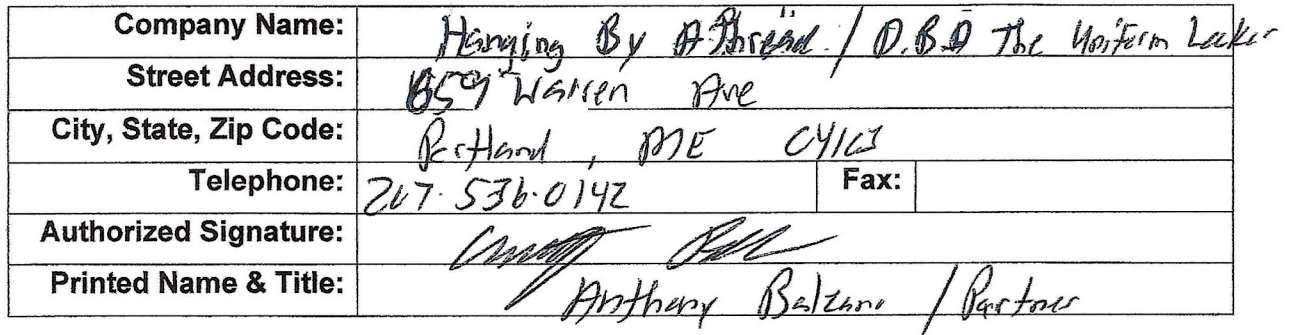 Company Name: Hanging By A Thread / D.B.A The Uniform Locker
Street Address: 859 Warren Ave
City, State, Zip Code: Portland, ME 04103
Telephone: 207-536-0142 Fax:
Authorized Signature:
Printed Name & Title: Anthony Balzano / Partner